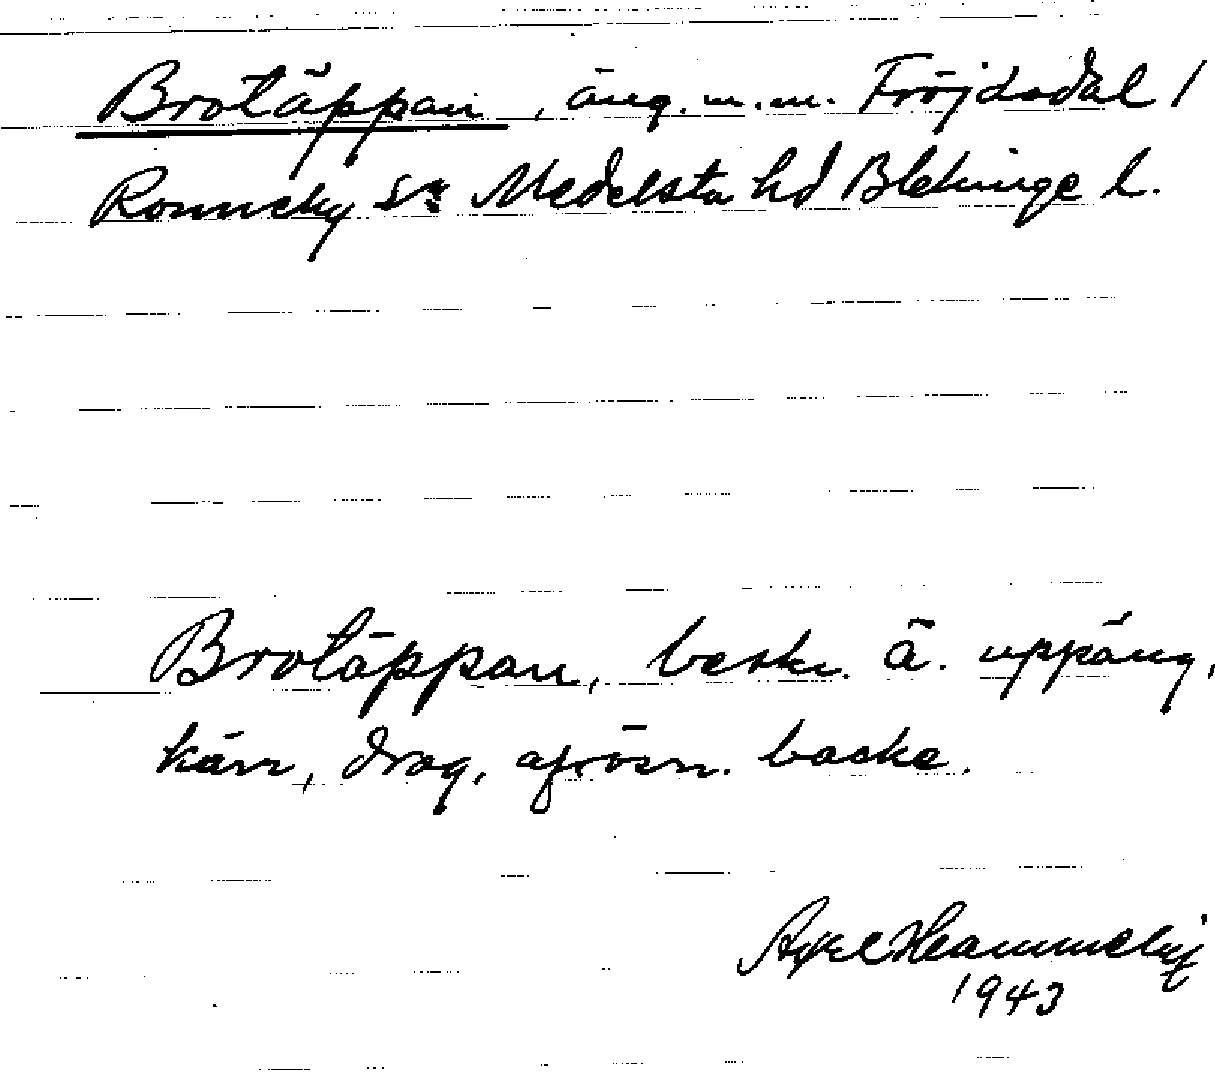 Brotäppan, äng. m.m. Fröjdsdal 1
Ronneby Sn Medelsta hd Blekinge l.
Brotäppan, beskr. å. uppäng,
kärr, drag, afrösn. backe.
Axel
1943